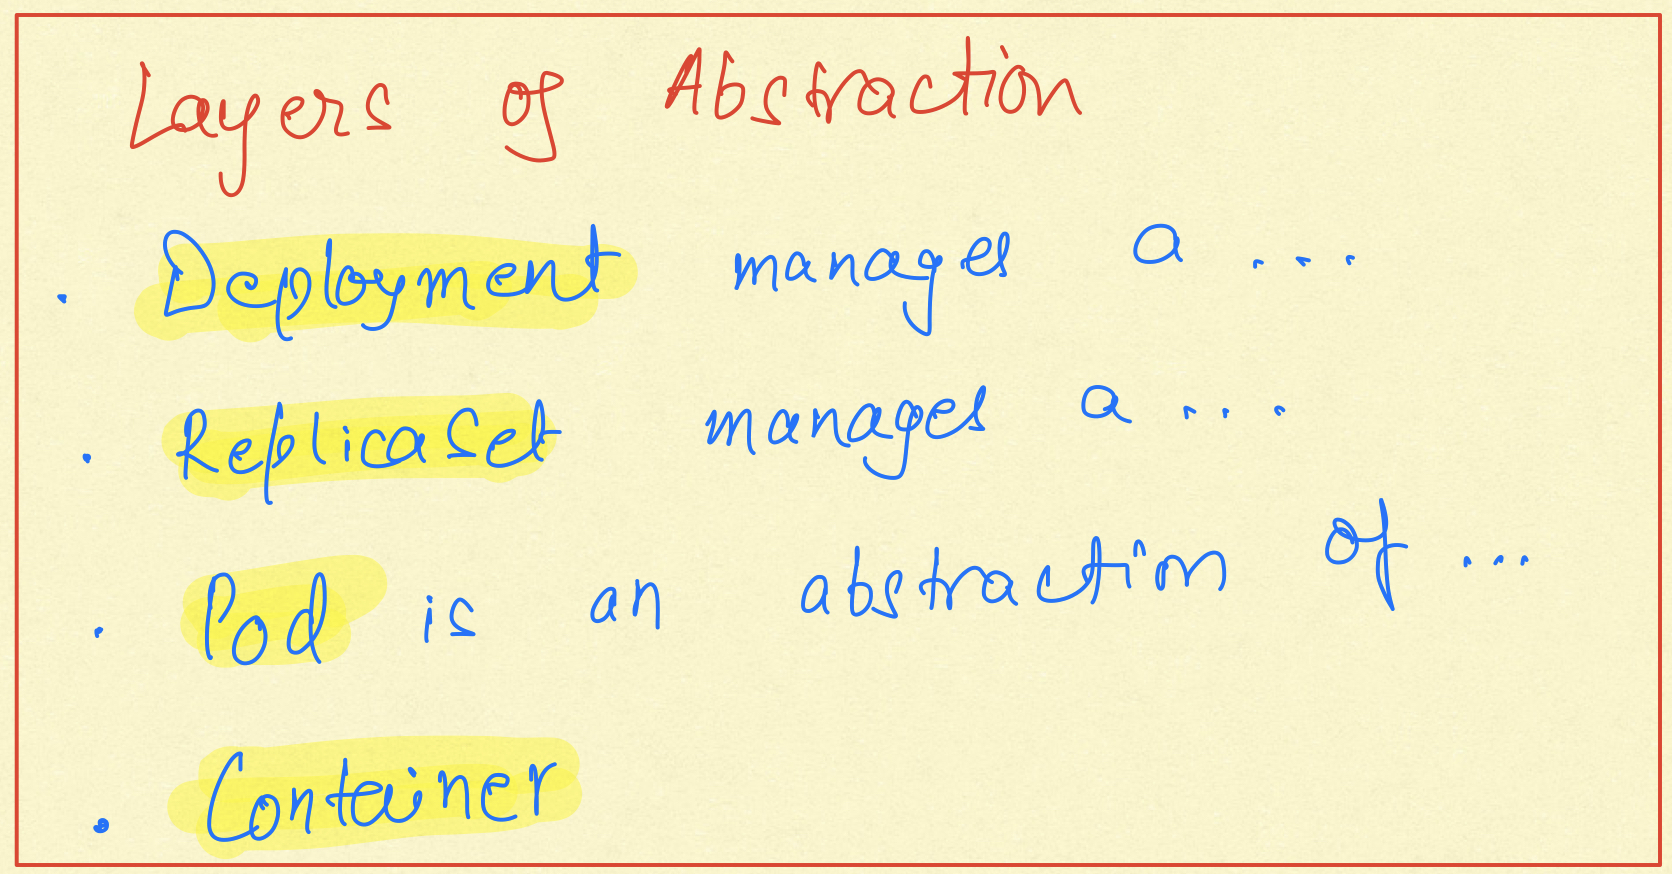 Layers of Abstraction
. Deployment manages a ...
. ReplicaSet manages a ...
. Pod is an abstraction of ...
. Container